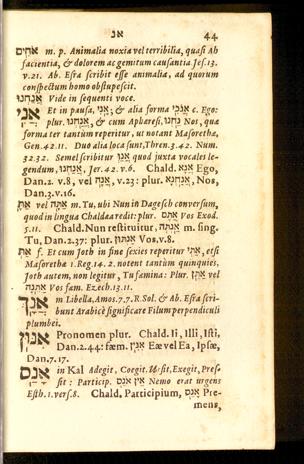 אנ 44
אֹחִים m. p. Animalia noxia vel terribilia, quasi Ah
facientia, & dolorem ac gemitum causantia Jes. 13.
v. 21. Ab. Esra scribit esse animalia, ad quorum
conspectum homo obstupescit.
אֲנַחְנוּ Vide in sequenti voce.
אֲנִי Et in pausa, אָנִי; & alia forma אָנֹכִי c. Ego:
plur. אֲנַחְנוּ, & cum Apharesi, נַחְנוּ Nos, qua
forma ter tantum reperitur, ut notant Masorethæ,
Gen. 42. 11. Duo alia loca sunt, Thren. 3. 42. Num.
32. 32. Semel scribitur אנו quod juxta vocales le-
gendum, אֲנַחְנוּ, Jer. 42. v. 6. Chald. אֲנָא Ego,
Dan. 2. v. 8, vel אֲנָה, v. 23: plur. אֲנַחְנָא, Nos,
Dan. 3. v. 16.
אַתָּ vel אַתָּה m. Tu, ubi Nun in Dagesch conversum,
quod in lingua Chaldæa redit: plur. אַתֶּם Vos Exod.
5. 11. Chald. Nun restituitur, אַנְתָּה m. sing.
Tu, Dan. 2. 37: plur. אַנְתּוּן Vos, v. 8.
אַתְּ f. Et cum Joth in fine sexies reperitur אַתִּי, etsi
Masorethæ 1. Reg. 14. 2. notent tantùm quinquies.
Joth autem, non legitur, Tu fœmina: Plur. אַתֵּן vel
אַתֵּנָה Vos fœm. Ezech. 13. 11.
אֲנָךְ m Libella, Amos. 7. 7. R. Sol. & Ab. Esra scri-
bunt Arabicè significare Filum perpendiculi
plumbei.
אִנּוּן Pronomen plur. Chald. Ii, Illi, Isti,
Dan. 2. 44: fæm. אִנִּין Eæ vel Ea, Ipsæ,
Dan. 7. 17.
אָנַס in Kal Adegit, Coegit. Ursit, Exegit, Pres-
sit: Particip. אֵין אֹנֵס Nemo erat urgens
Esth. 1. vers. 8. Chald. Participium, אָנֵס Pre-
mens,